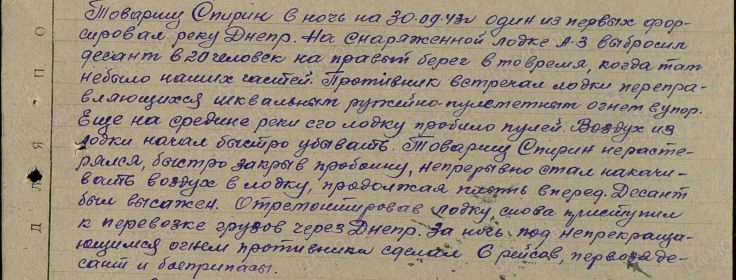 Товарищ Спирин в ночь на 30.09.43г один из первых фор-
сировал реку Днепр. На снаряженной лодке А-3 выбросил
десант в 20 человек на правый берег в то время, когда там
небыло наших частей. Противник встречал лодки перепра-
вляющихся шквальным ружейно-пулеметным огнем в упор.
Еще на средине реки его лодку пробило пулей. Воздух из
лодки начал быстро убывать. Товарищ Спирин нерасте-
рялся, быстро закрыв пробоину, непрерывно стал накачи-
вать воздух в лодку, продолжая плыть вперед. Десант
был высажен. Отремонтировав лодку, снова приступил
к перевозке грузов через Днепр. За ночь под непрекраща-
ющимся огнем противника сделал 6 рейсов, перевозя де-
сант и боеприпасы.
О П
Я
Л
Д